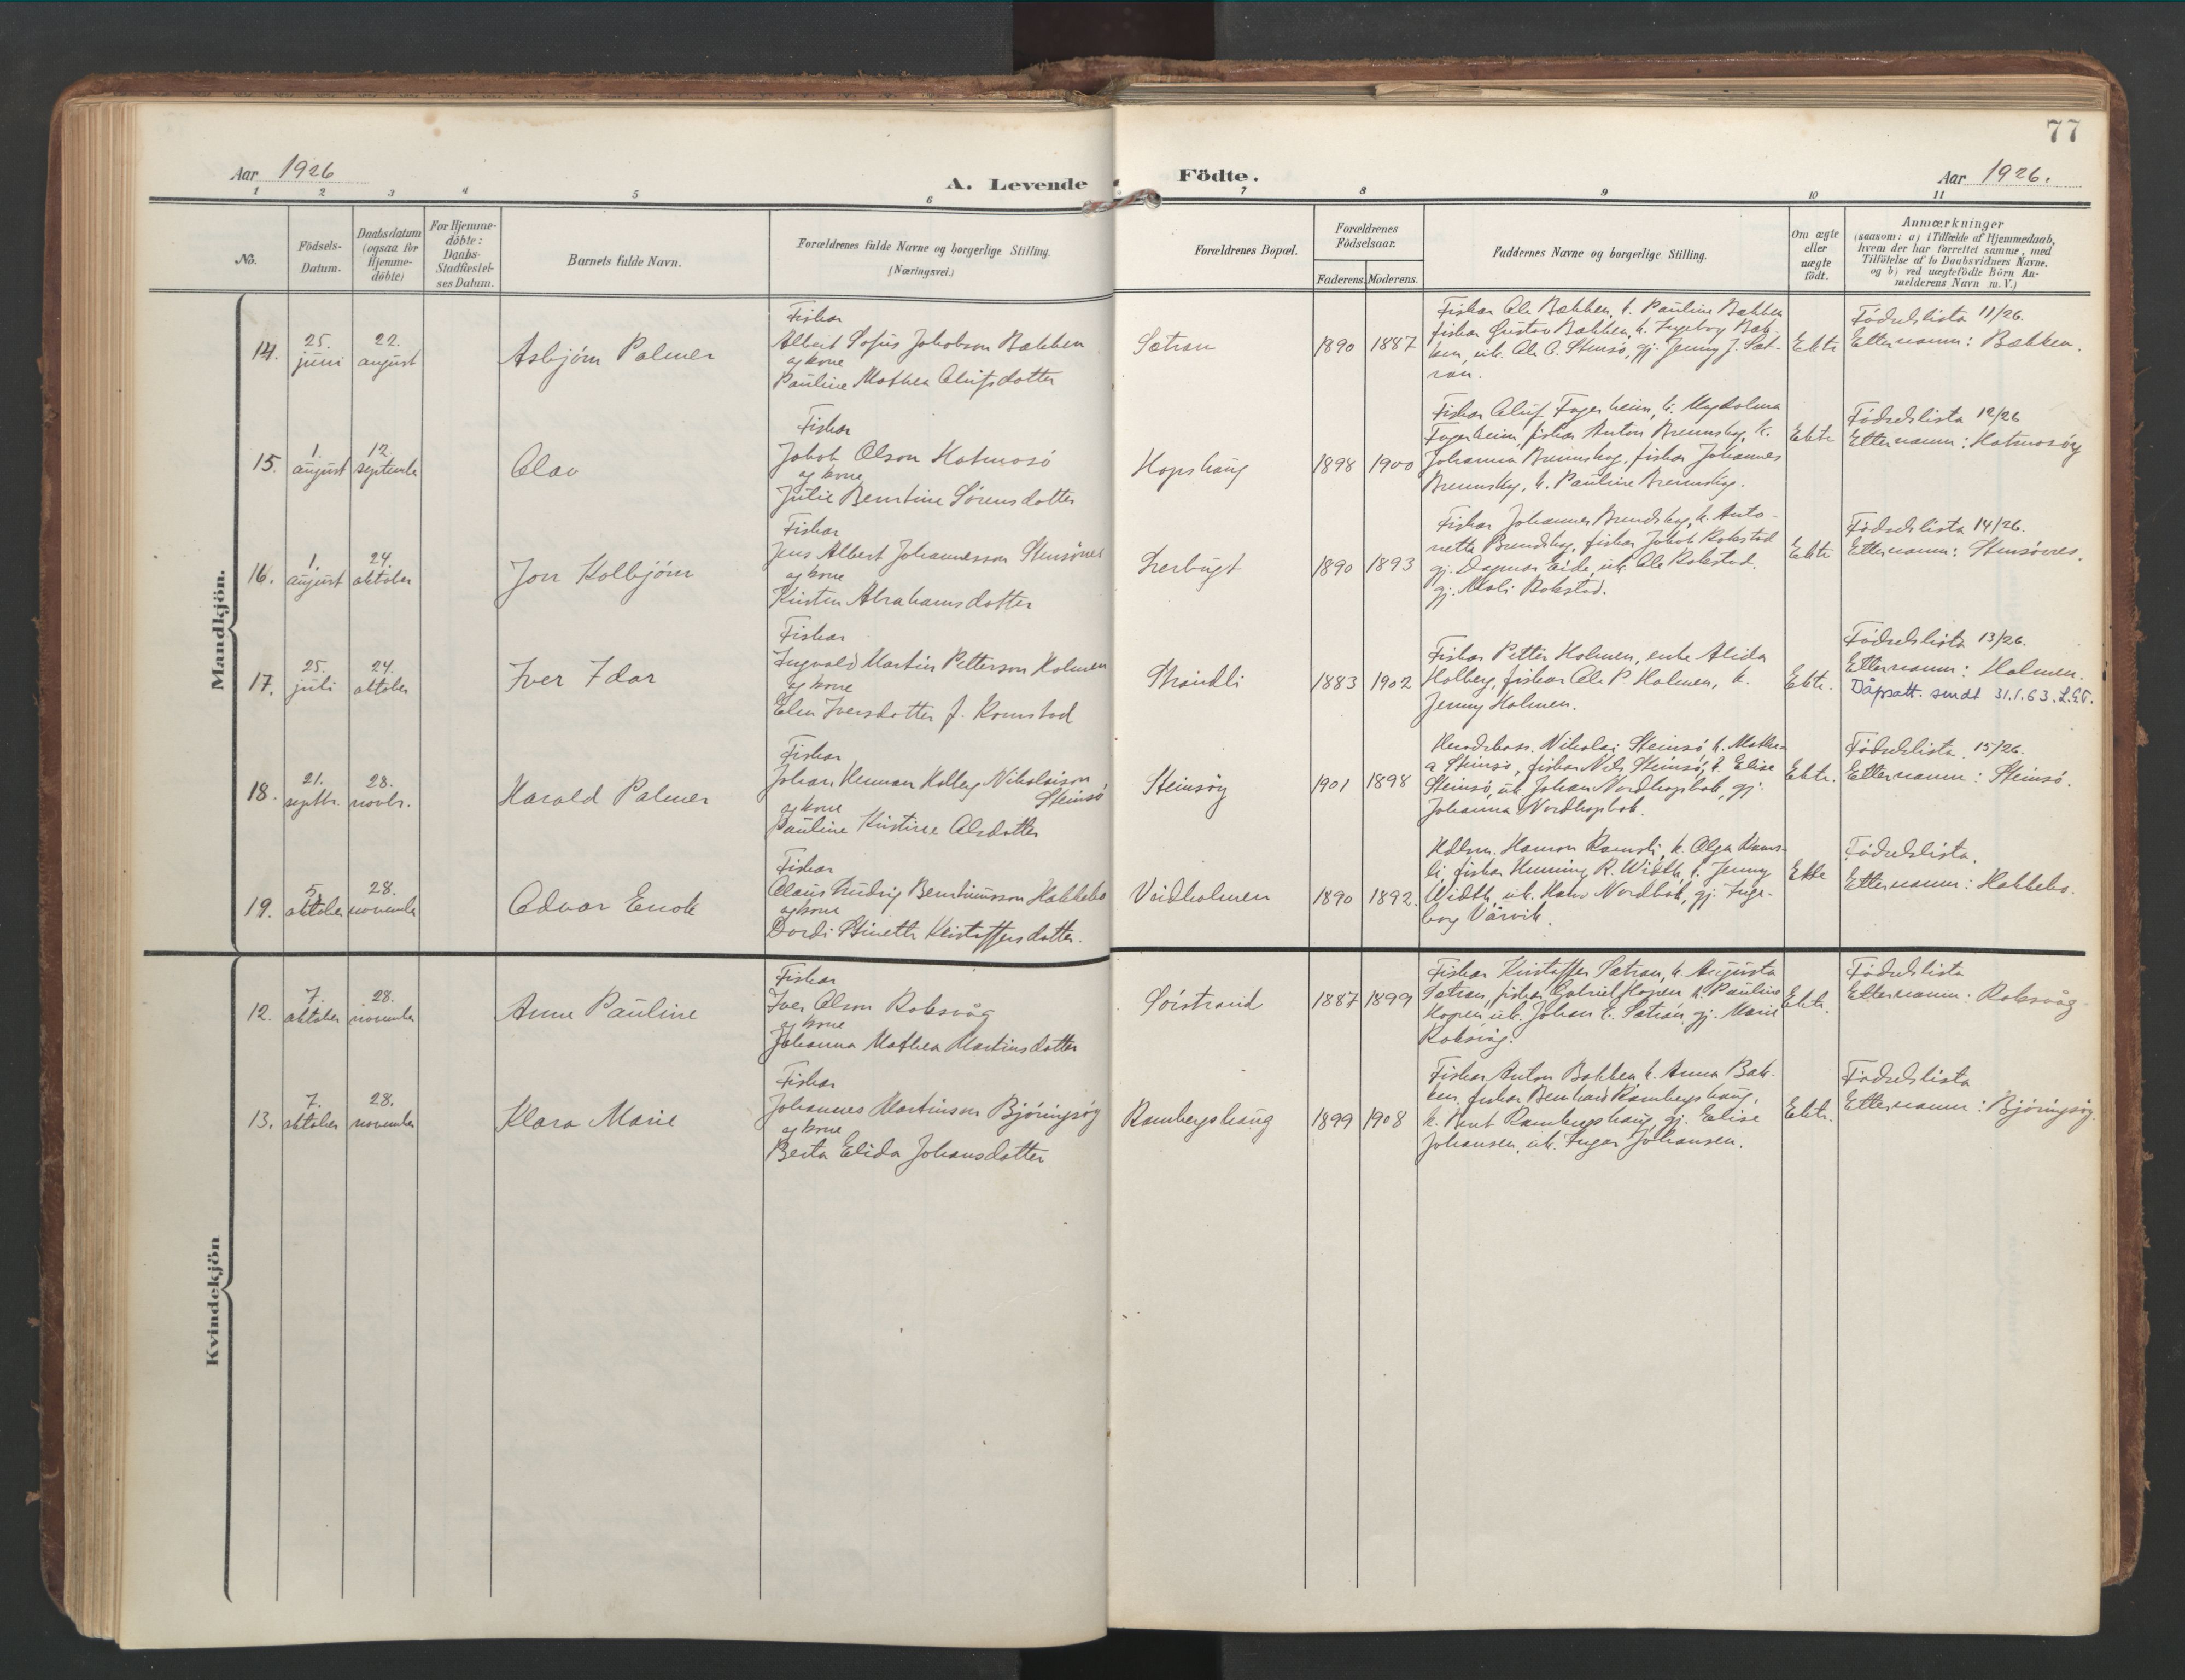 77
Aar 1926
A. Levende Födte.
Aar 1926.
1 2 3 4 5 6 7 8 9 10 11
No.
Födsels-
Datum.
Daabsdatum
(ogsaa for
Hjemme-
döbte)
For Hjemme-
döbte:
Daabs-
Stadfæstel-
ses Datum.
Barnets fulde Navn.
Forældrenes fulde Navne og borgerlige Stilling.
(Næringsvei.)
Forældrenes Bopæl.
Forældrenes
Födselsaar.
Faderens. Moderens.
Faddernes Navne og borgerlige Stilling.
Om ægte
eller
uægte
födt.
Anmærkninger
(saasom: a) i Tilfælde af Hjemmedaab,
hvem der har forrettet samme, med
Tilföielse af to Daabsvidners Navne.
og b) ved uægtefödte Börn An-
melderens Navn m. V.)
Mandkjön.
14.
25.
juni
22.
august
Asbjörn Palmer
Fiskar
Albert Sofus Jakobson Bakken
og kone
Pauline Mathea Olufsdotter
Sætran
1890 1887
Fiskar Ole Bakken, k. Pauline Bakken
fiskar Gustav Bakken, k. Ingeborg Bak-
ken, uk. Ole O. Stensö, gj. Jenny J. Sæt-
ran.
Ekte
Födselslista 11/26.
Etternamn: Bakken.
15.
1.
august
12.
september
Olav
Fiskar
Jakob Olson Hatmosö
og kone
Julie Berntine Sörensdotter
Hopshaug
1898 1900
Fiskar Oluf Fagerheim, k. Magdalena
Fagerheim, fiskar Anton Brennskag, k.
Johanna Brennskag, fiskar Johannes
Brennskag, k. Pauline Brennskag.
Ekte
Födselslista 12/26
Etternamn: Hatmosöy
16.
1.
august
24.
oktober
Jon Kolbjörn
Fiskar
Jens Albert Johannesson Stensönes
og kone
Kirsten Abrahamsdotter
Lerbugt
1890 1893
Fiskar Johannes Brendskag, k. Anto-
nette Brendskag, fiskar Jakob Rokstad
gj. Dagmar Eide, uk. Ole Rokstad.
gj. Mali Rokstad.
Ekte
Födselslista 14/26.
Etternamn: Stensönes.
17.
25.
juli
24.
oktober
Iver Idar
Fiskar
Ingvald Martin Petterson Holmen
og kone
Elen Iversdotter f. Romstad
Strandli
1883 1902
Fiskar Petter Holmen, enke Alida
Holberg, fiskar Ole P. Holmen, k.
Jenny Holmen.
Ekte.
Födselslista 13/26.
Etternamn: Holmen.
Dåpsatt. sendt 31.1.63. L.E.T.
18.
21.
septbr.
28.
novbr.
Harald Palmer
Fiskar
Johan Herman Kolberg Nikolaison
Steinsö
og kone
Pauline Kristine Olsdotter
Steinsöy
1901 1898
Nikolai Steinsö k. Mathe-
a Steinsö, fiskar Nils Steinsö, k. Elise
Steinsö, uk. Johan Nordhopbak, gj.
Johanna Nordhopbak.
Ekte.
Födselslista 15/26.
Etternamn: Steinsö.
19.
5.
oktober
28.
november
Odvar Enok
Fiskar
Olaus Ludvig Berntinusson Hakkebo
og kone
Dordi Stinette Kristoffersdotter.
Veidholmen
1890 1892.
Hdlsm. Hanson Ramsli, k. Olga Rams-
li, fiskar Henning R. Width, k. Jenny
Width, uk. Nordbak, gj. Inge-
borg Vårvik.
Ekte
Födselslista.
Etternamn: Hakkebo.
Kvindekjön
12.
7.
oktober
28.
november
Anne Pauline
Fiskar
Iver Olson Roksvåg
og kone
Johanna Mathea Martinsdotter
Sörstrand
1887 1899
Fiskar Kristoffer Sætran, k. Augusta
Sætran, fiskar Gabriel Hopen, k. Pauline
Hopen, uk. Johan K. Sætran, gj. Marie
Roksvåg.
Ekte.
Födselslista
Etternamn: Roksvåg.
13.
7.
oktober
28.
november
Klara Marie
Fiskar
Johannes Martinson Björingsöy
og kone
Berta Elida Johansdotter
Rambergshaug
1899 1908
Fiskar Anton Bakken k. Anna Bak-
ken, fiskar Bernhard Rambergshaug,
k. Rambergshaug, gj. Elise
Johansen, uk. Ingar Johansen.
Ekte.
Födselslista
Etternamn: Björingsöy.